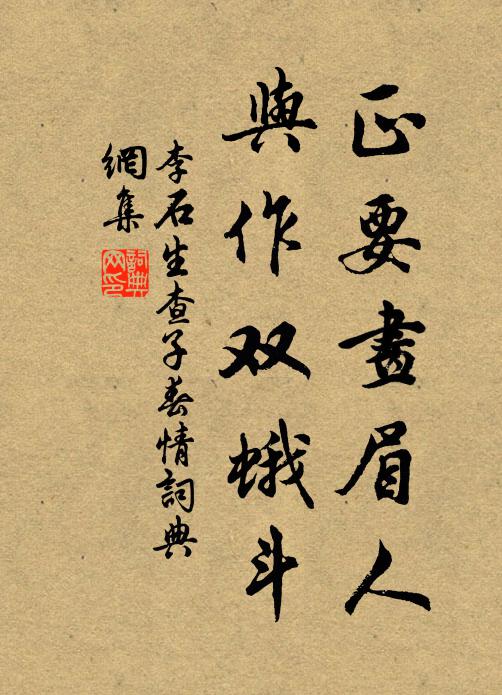 正要畫眉人
與作双蛾斗
李石生查子春情詞典
網集
詞典网印